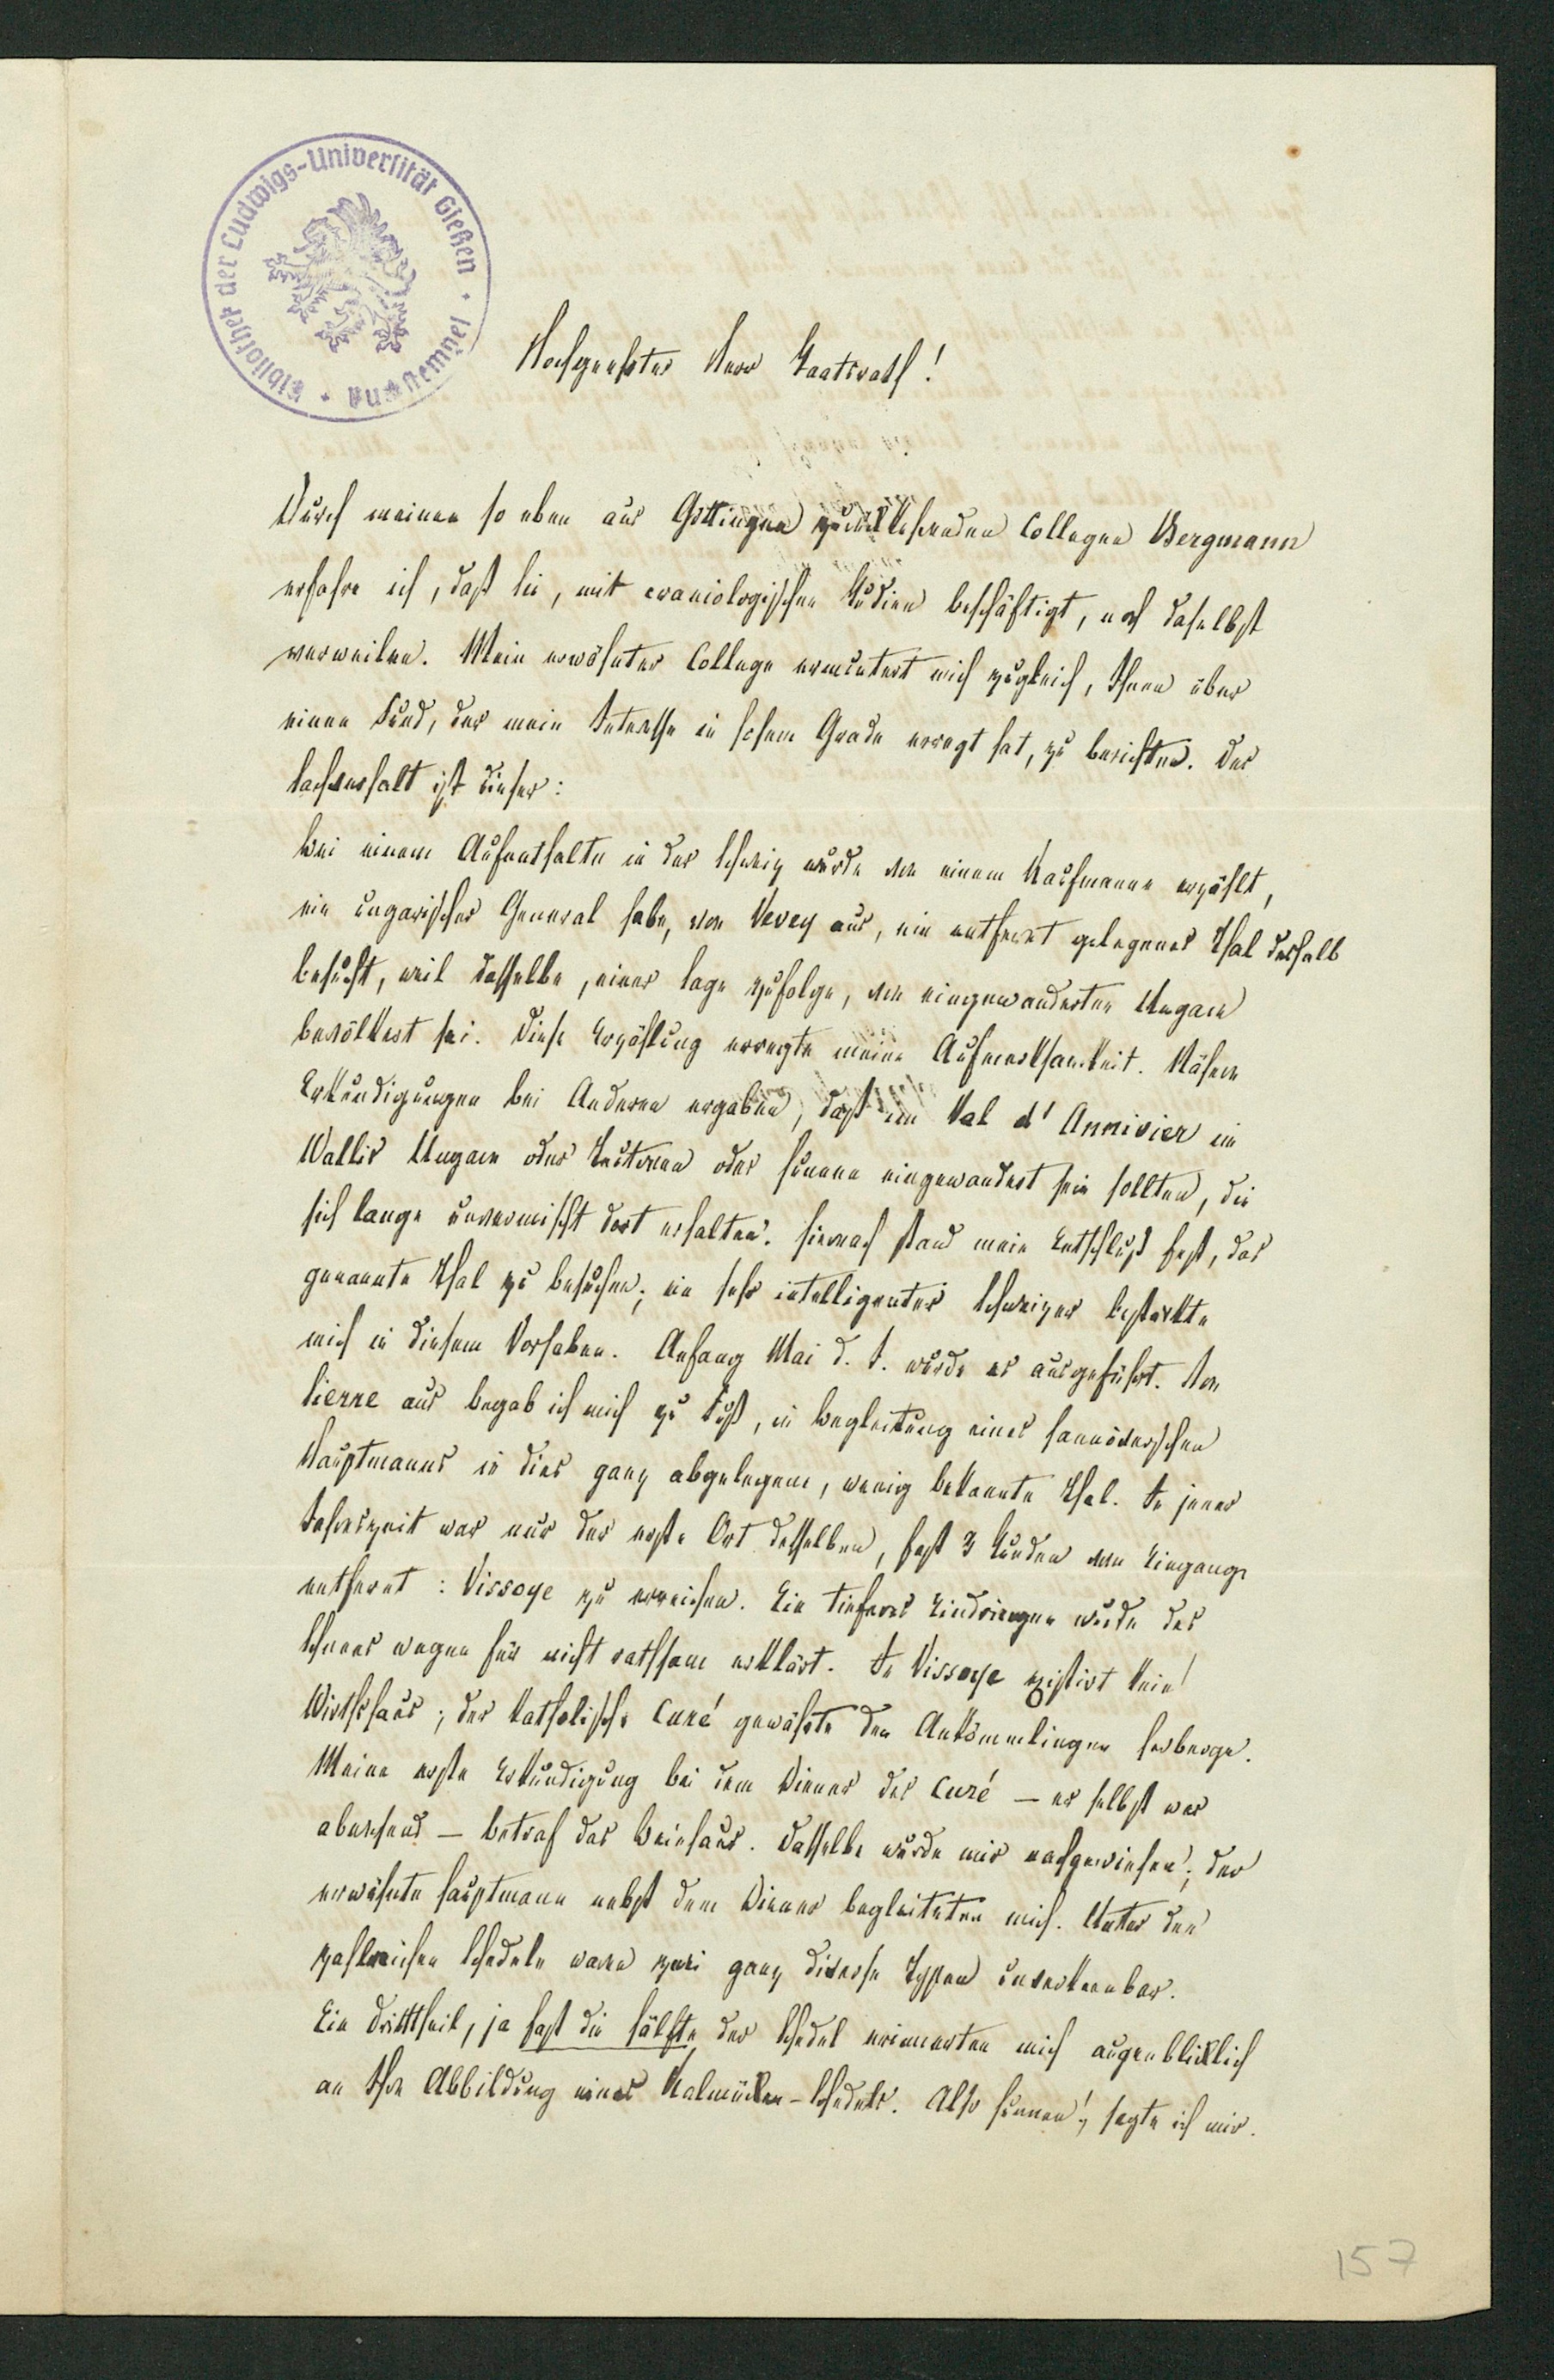 Bibliothek der Ludwigs-Universität Gießen
Hochgeehrter Herr Staatsrath!
Durch meinen so eben aus Göttingen zurückkehrenden Collegen Bergmann
erfahre ich, daß Sie, mit craniologischen Studien beschäftigt, noch daselbst
verweilen. Mein erwähnter College ermuntert mich zugleich, Ihnen über
einen Fund, der mein Interesse in hohem Grade erregt hat, zu berichten. Der
Sachverhalt ist dieser:
Bei einem Aufenthalte in der Schweiz wurde von einem Kaufmanne erzählt,
ein ungarischer General habe, von Vevey aus, ein entfernt gelegenes Thal deshalb
besucht, weil dasselbe, einer Sage zufolge, von eingewanderten Ungarn
bevölkert sei. Diese Erzählung erregte meine Aufmerksamkeit. Nähere
Erkundigungen bei Anderen ergaben, daß im Val d'Annivier im
Wallis Ungarn oder Tartaren oder Hunnen eingewandert sein sollten, die
sich lange unvermischt dort erhalten. Hiernach stand mein Entschluß fest, das
genannte Thal zu besuchen; ein sehr intelligenter Schweizer bestärkte
mich in diesem Vorhaben. Anfang Mai d. J. wurde es ausgeführt. Von
Sierre aus begab ich mich zu Fuß, in Begleitung eines hannöverschen
Hauptmanns in dies ganz abgelegene, wenig bekannte Thal. In jener
Jahreszeit war nur der erste Ort desselben, fast 3 Stunden vom Eingange
entfernt: Vissoye zu erreichen. Ein tieferes Eindringen wurde des
Schnees wegen für nicht rathsam erklärt. In Vissoye existirt kein
Wirthshaus; der katholische Curé gewährte den Ankömmlingen Herberge.
Meine erste Erkundigung bei dem Diener des Curé – er selbst war
abwesend – betraf das Beinhaus. Dasselbe wurde mir nachgewiesen; der
erwähnte Hauptmann nebst dem Diener begleiteten mich. Unter den
zahlreichen Schedeln waren zwei ganz diverse Typen unverkennbar.
Ein Dritttheil, ja fast die Hälfte der Schedel erinnerten mich augenblicklich
an Ihre Abbildung eines Kalmücken-Schedels. Also Hunnen!, sagte ich mir.
157